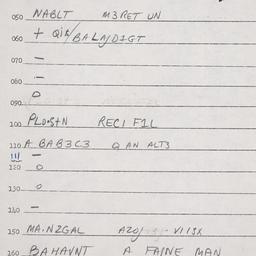 050 NABLT M3RET UN
060 + QIK/BALAJDIGT
070 —
080 —
090 O
100 PLO·S+N RECI F1L
110 A BAB3C3 Q AN ALT3
111 —
120 O
130 O
140 —
150 MA.NZGAL
160 BAHAVNT A FAINE MAN